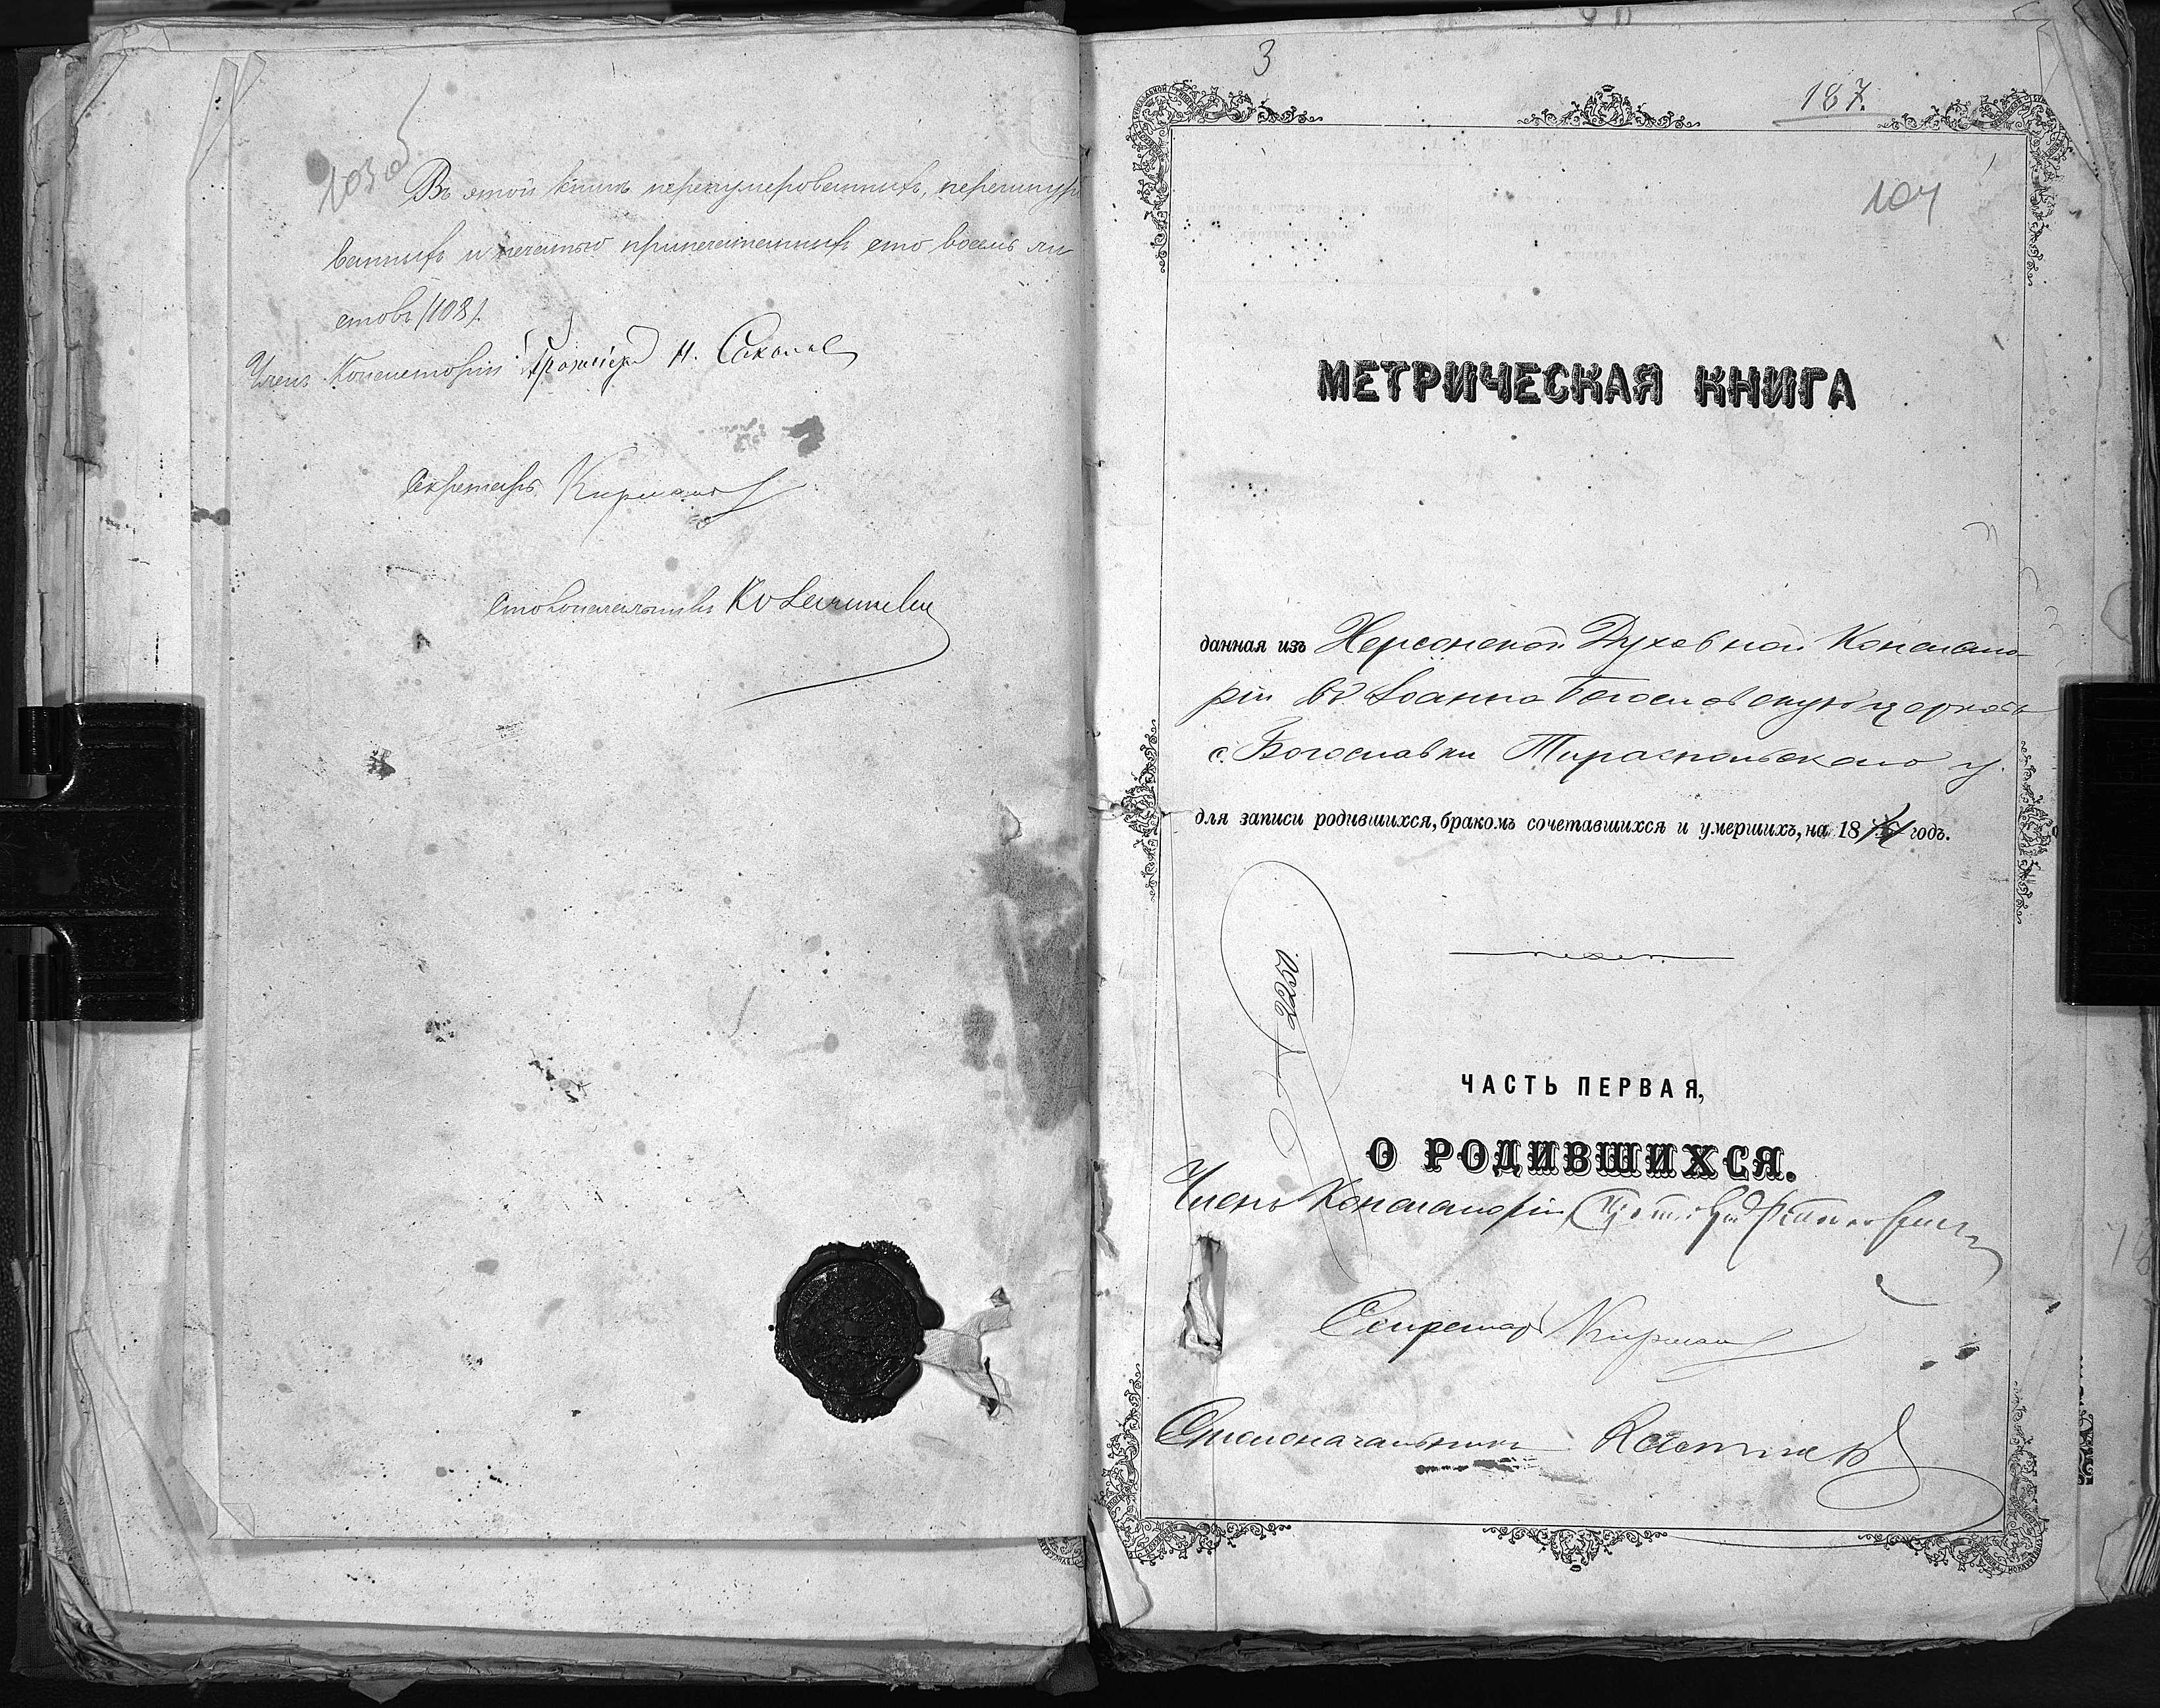 103 об
Въ этой книгѣ перенумерованныхъ, перешнуро
ванныхъ и печатью припечатанныхъ сто восемь ли
стовъ (108).
Членъ Консисторіи Протоіерей Н. Соколов
Секретарь
Столоначальникъ
3
187.
104
МЕТРИЧЕСКАЯ КНИГА
данная изъ Херсонской Духовной Консисто
ріи въ Іоанно Богословскую церковь
с. Богославки Тираспольскаго у.
для записи родившихся, бракомъ сочетавшихся и умершихъ, на 18 годъ.
ЧАСТЬ ПЕРВАЯ,
О РОДИВШИХСЯ.
Членъ Консисторіи
Секретарь
Столоначальникъ